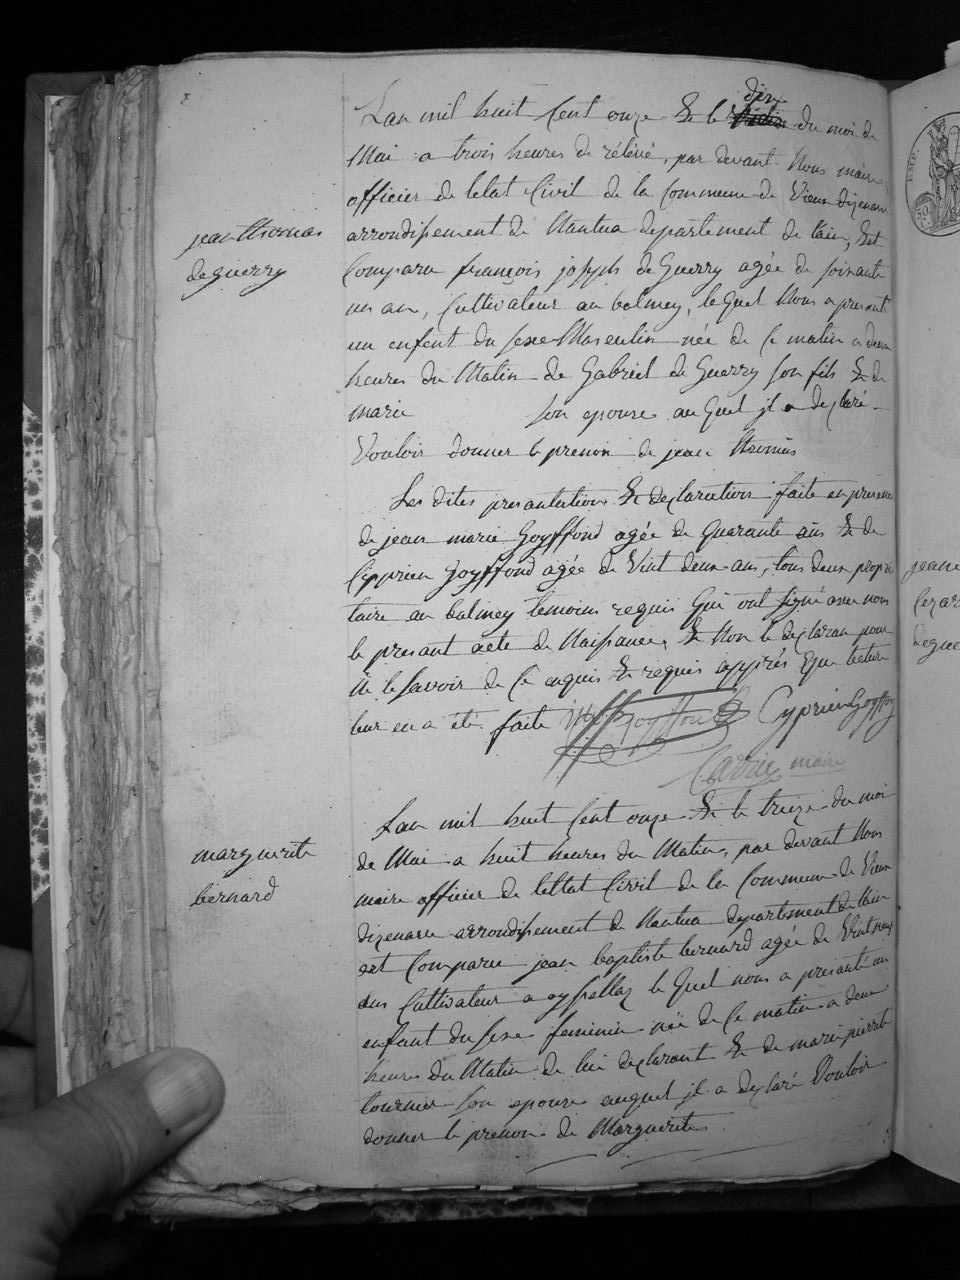 Lan mil huit Cent onze & le dix du moi de
Mai a trois heures de rélévé, par devant Nous maire
officier de letat Civil de la Commune de Vieux dizenave
jean thomas
deguerry
arrondissement de Nantua departement de lain, Est
Comparu françois joseph deGuerry agée de soisante
un an, Cultivateur au balmey, le quel Nous a presenté
un enfent du sexe Masculin née de Ce matin a deux
heures du Matin de Gabriel de Guerry son fils & de
marie son epouse au quel jl a declaré
Vouloir donner le prenon de jean thomas
Les dites presantation & declaration faite en presence
de jean marie Goyffond agée de quarante ans & de
Cipprien Goyffond agée de Vint deux ans, tous deux propri
taire au balmey temoins requis qui ont signé avec nous
le presant acte de Naissance, & Non le declaran pour
ne le savoir de Ce enquis & requis apprés que lecture
leur en a eté faite Goyffond Cyprien Goyffon
maire
marguerite
bernard
Lan mil huit Cent onze & le treize du moi
de Mai a huit heures du Matin, par devant Nous
maire officier de lettat Civil de la Commune de Vieux
dizenave arrondissement de Nantua departement de lain
est Comparu jean baptiste bernard agée de Vint neuf
ans Cultivateur a oyssellaz le quel nous a presanté un
enfant du sexe feminin née de Ce matin a deux
heures du Matin de lui declarant & de marie pierrete
tournier son epouse auquel jl a declaré Vouloir
donner le prenon de Marguerite
jean
Cezar
degue